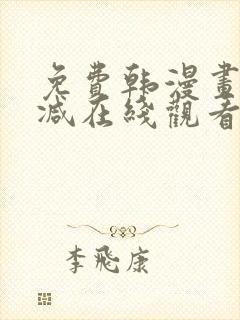 免費韩漫畫
减在綫觀看
李飛康